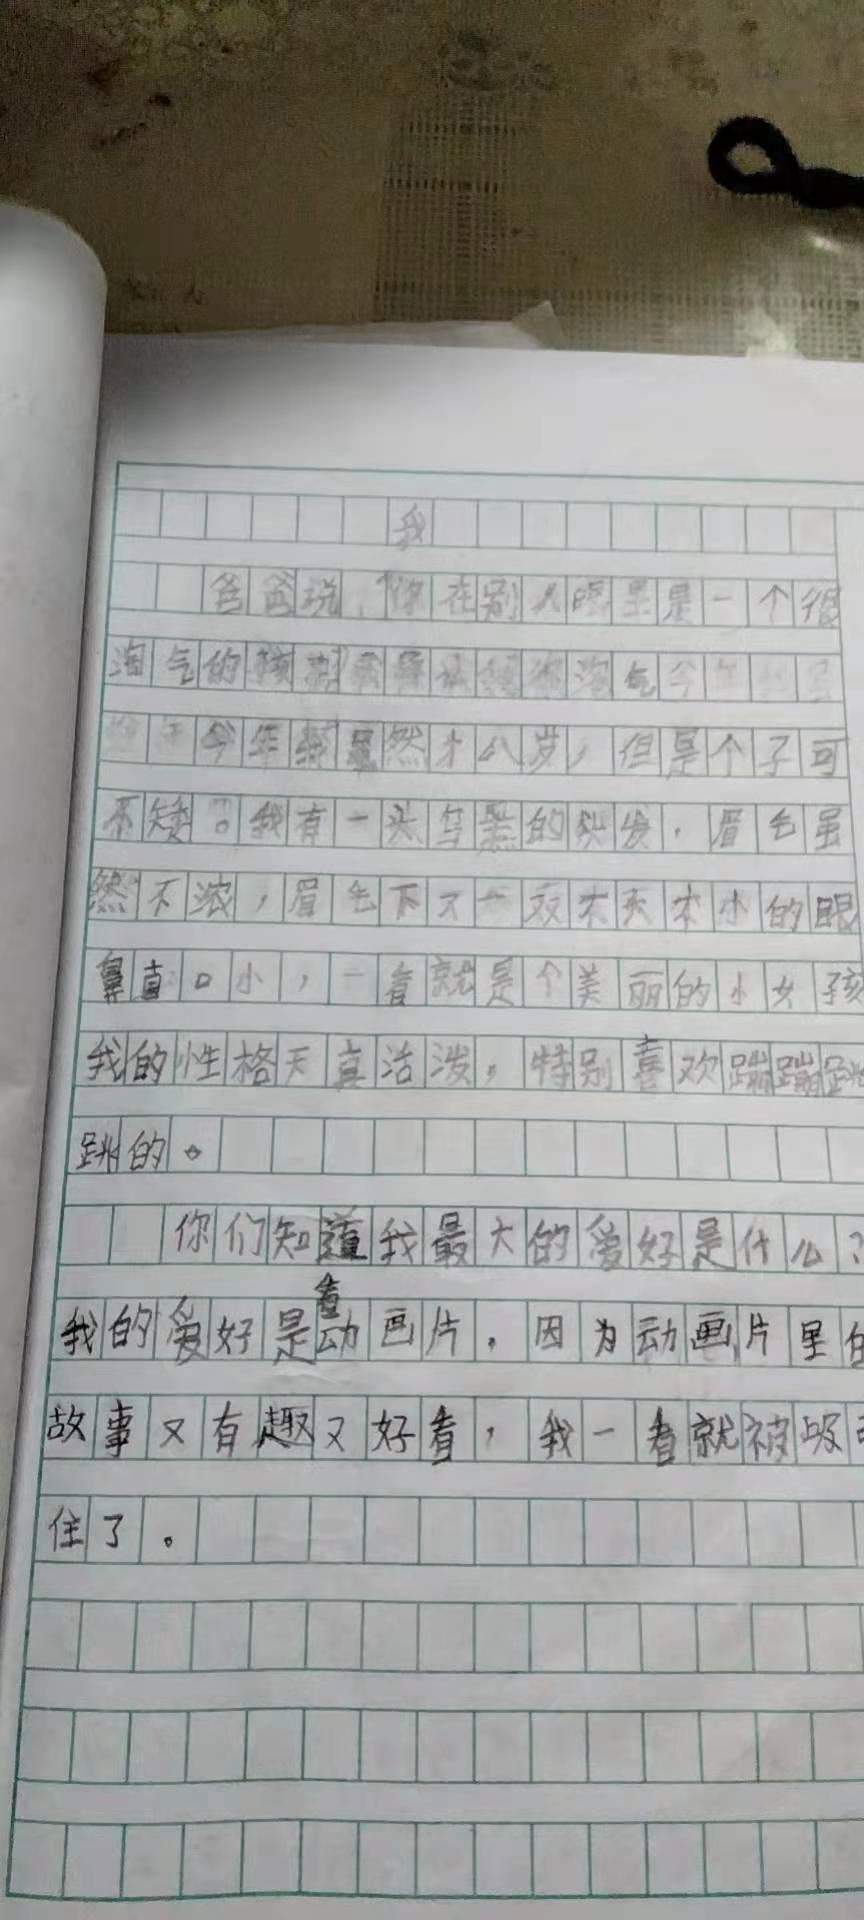 我
爸爸说，“你在别人眼里是一个很
淘气的孩 淘气今年
今年我虽然才八岁，但是个子可
不矮。我有一头乌黑的头发，眉毛虽
然不浓，眉毛下又一双不大不小的眼
鼻直口小，一看就是个美丽的小女孩
我的性格天真活泼，特别喜欢蹦蹦跳
跳的。
你们知道我最大的爱好是什么？
我的爱好是看动画片。因为动画片里的
故事又有趣又好看，我一看就被吸引
住了。